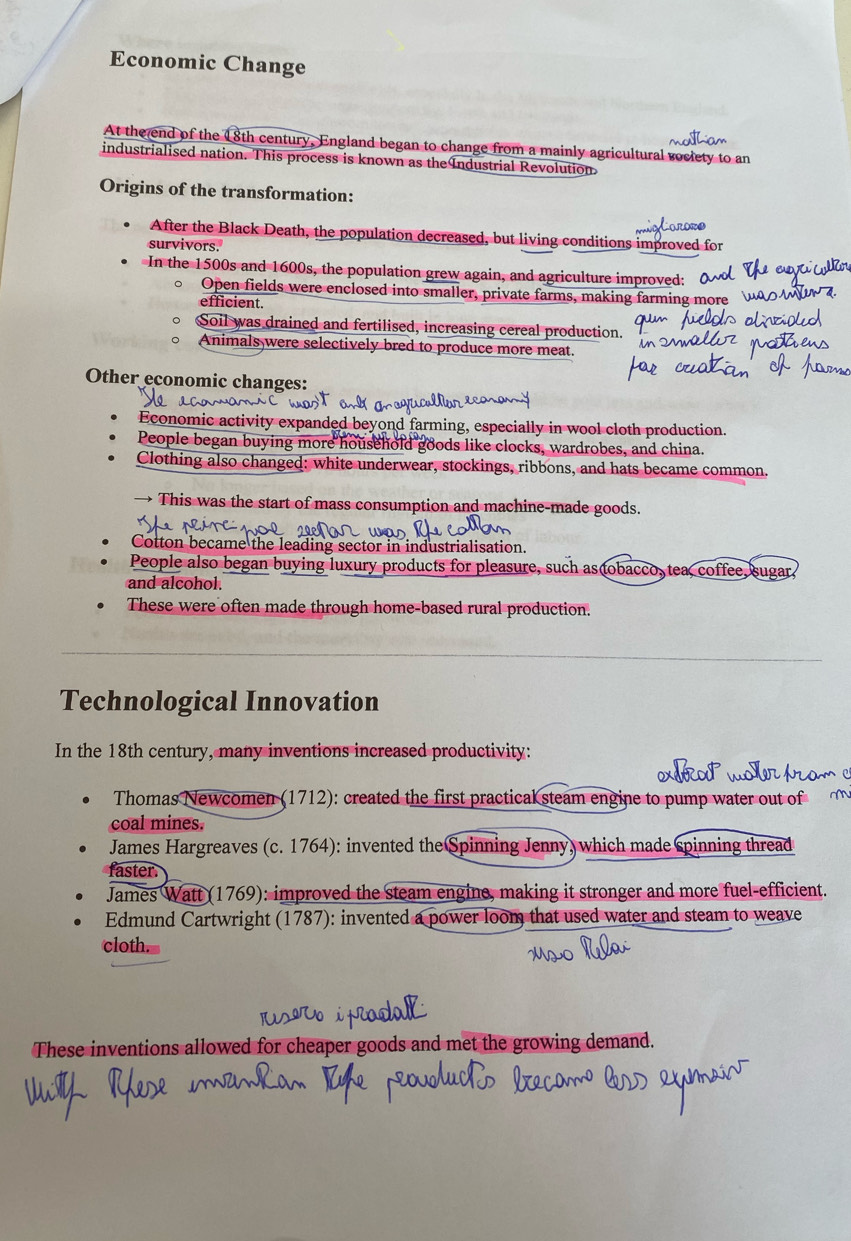 Economic Change
nathian
At the end of the 18th century, England began to change from a mainly agricultural society to an
industrialised nation. This process is known as the Industrial Revolution.
Origins of the transformation:
• After the Black Death, the population decreased, but living conditions improved for
survivors.
• In the 1500s and 1600s, the population grew again, and agriculture improved: and the
○ Open fields were enclosed into smaller, private farms, making farming more was
efficient.
○ Soil was drained and fertilised, increasing cereal production. fields divided
○ Animals were selectively bred to produce more meat. in smaller
creation of
Other economic changes:
economy
• Economic activity expanded beyond farming, especially in wool cloth production.
• People began buying more household goods like clocks, wardrobes, and china.
• Clothing also changed: white underwear, stockings, ribbons, and hats became common.
→ This was the start of mass consumption and machine-made goods.
sector was
• Cotton became the leading sector in industrialisation.
• People also began buying luxury products for pleasure, such as tobacco, tea, coffee, sugar,
and alcohol.
• These were often made through home-based rural production.
Technological Innovation
In the 18th century, many inventions increased productivity:
water from
• Thomas Newcomen (1712): created the first practical steam engine to pump water out of
coal mines.
• James Hargreaves (c. 1764): invented the Spinning Jenny, which made spinning thread
faster.
• James Watt (1769): improved the steam engine, making it stronger and more fuel-efficient.
• Edmund Cartwright (1787): invented a power loom that used water and steam to weave
cloth.
Telai
These inventions allowed for cheaper goods and met the growing demand.
With these the products became less